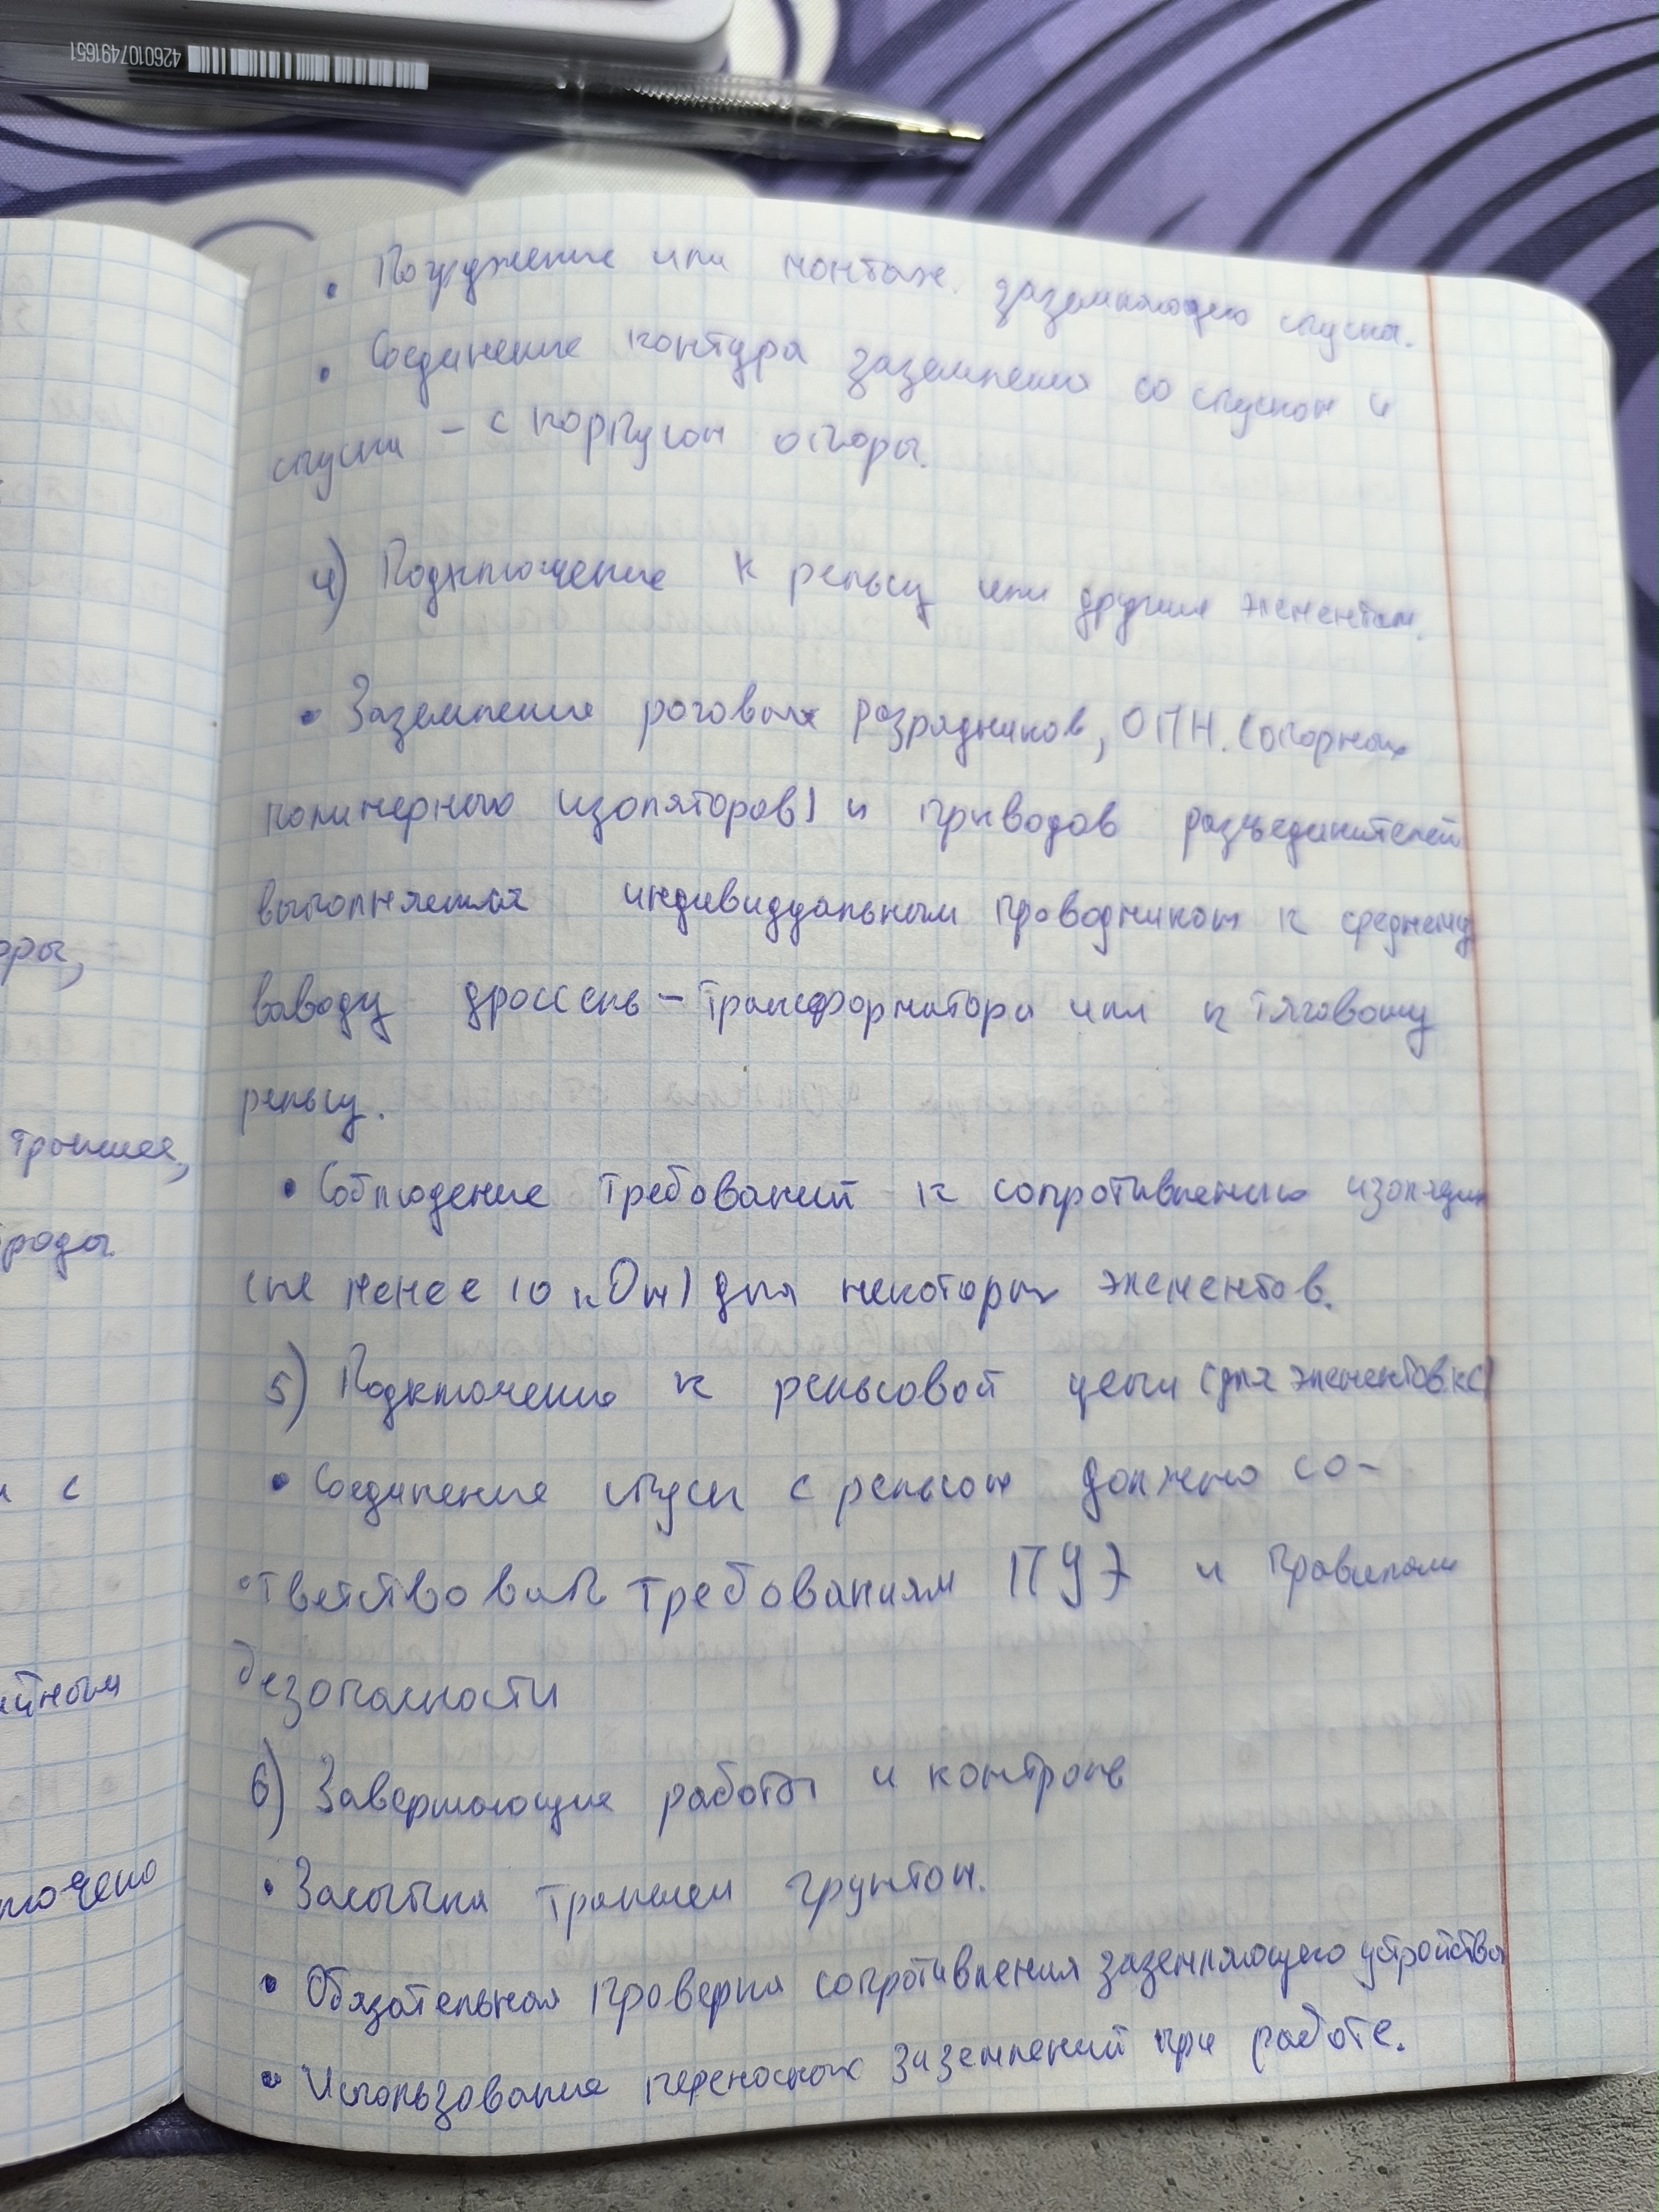 4260107491651
• Погружение или монтаж. заземляющего спуска.
• Соединение контура заземления со спуском и
спуска – с корпусом опоры.
4) Подключение к рельсу или другим элементам.
• Заземление роговых разрядников, ОПН. (опорных
полимерного изоляторов) и приводов разъединителей
выполняется индивидуальным проводником к среднему
выводу дроссель – трансформатора или к тяговому
рельсу.
• Соблюдение требований к сопротивлению изоляции
(не менее 10 кОм) для некоторых элементов.
5) Подключение к рельсовой цепи (для элементов кс)
• Соединение спуска с рельсом должно со-
ответствовать требованиям ПУЭ и Правилам
безопасности
6) Завершающие работы и контроль
• Засыпка траншеи грунтом.
• Обязательная проверка сопротивления заземляющего устройства
• Использование переносных заземлений при работе.
оры,
траншея,
роды.
с
йным
ючено